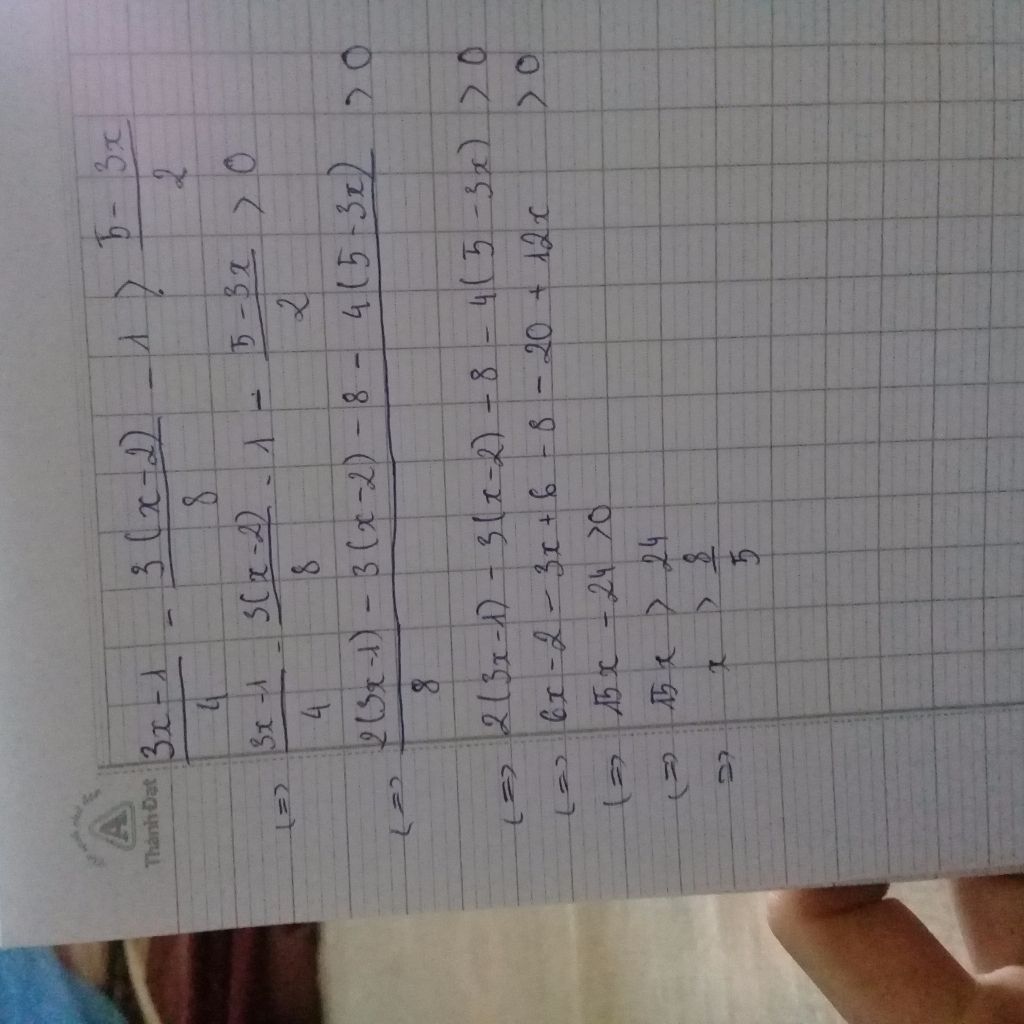 Thành Đạt
(3x - 1)/4 - 3(x - 2)/8 - 1 > (5 - 3x)/2
(=) (3x - 1)/4 - 3(x - 2)/8 - 1 - (5 - 3x)/2 > 0
(=) (2(3x - 1) - 3(x - 2) - 8 - 4(5 - 3x))/8 > 0
(=) 2(3x - 1) - 3(x - 2) - 8 - 4(5 - 3x) > 0
(=) 6x - 2 - 3x + 6 - 8 - 20 + 12x > 0
(=) 15x - 24 > 0
(=) 15x > 24
=) x > 8/5